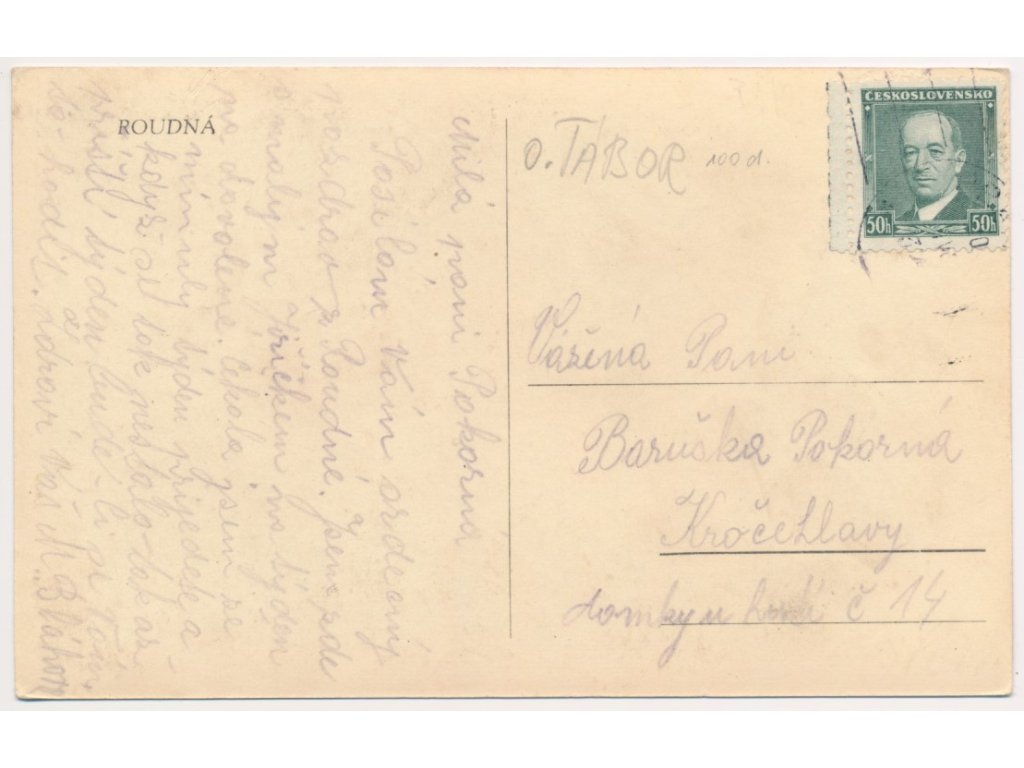 ROUDNÁ
Milá paní Pokorná
Posílám Vám srdečný
pozdrav z Roudné. Jsem zde
s malým Jiříčkem na týden
na dovolené. Čekala jsem se
minulý týden přijedete a
když se tak nestalo-tak as-
příští týden bude-li se Vám
to-hodit. zdraví Vás M. Bláhová
O. TABOR 100d.
ČESKOSLOVENSKO
50h 50h
Vážená Paní
Baruška Pokorná
Kročehlavy
domky u č 14